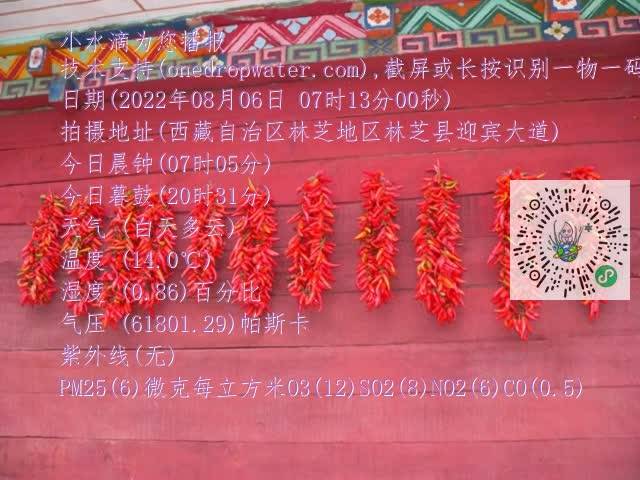 小水滴为您播报
技术支持(onedropwater.com),截屏或长按识别一物一码
日期(2022年08月06日 07时13分00秒)
拍摄地址(西藏自治区林芝地区林芝县迎宾大道)
今日晨钟(07时05分)
今日暮鼓(20时31分)
天气 (白天多云)
温度 (14.0℃)
湿度 (0.86)百分比
气压 (61801.29)帕斯卡
紫外线(无)
PM25(6)微克每立方米O3(12)SO2(8)NO2(6)CO(0.5)